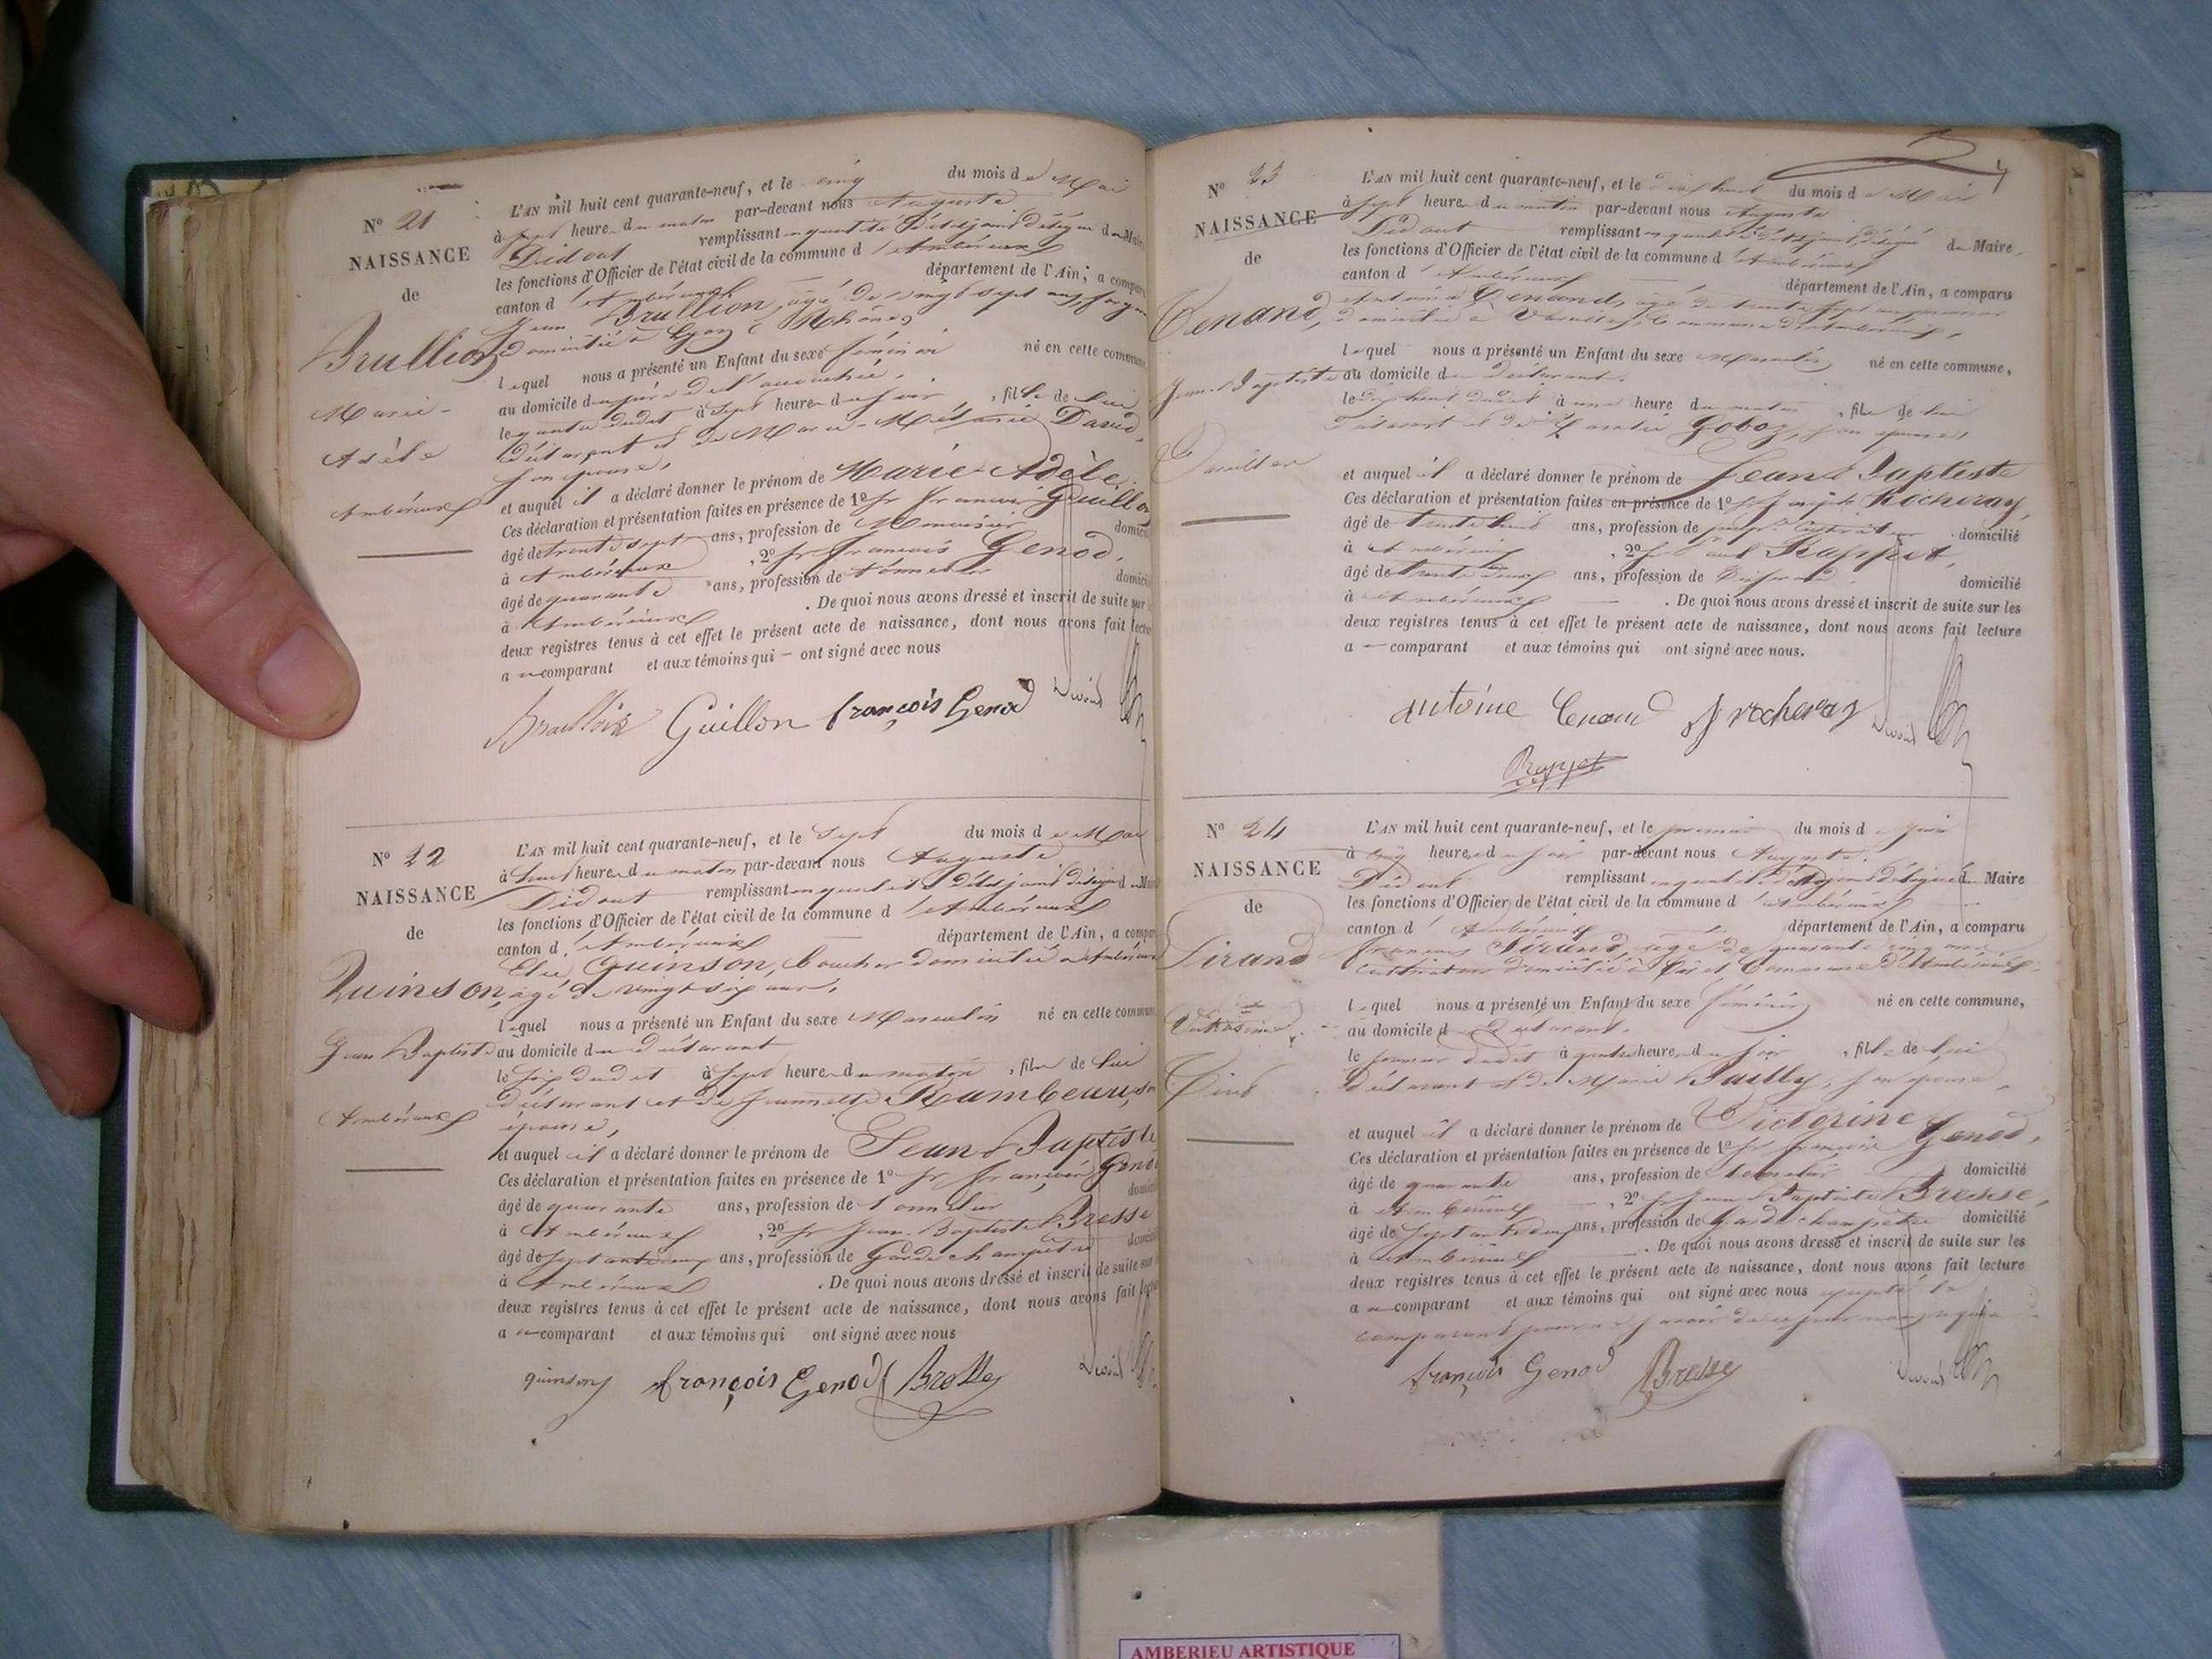 N° 21
NAISSANCE
de
Brullion
Marie-
Adèle
Ambérieux
L'AN mil huit cent quarante-neuf, et le cinq du mois de Mai
à heure du matin par-devant nous Auguste
Didout remplissant en qualité d du Maire
les fonctions d'Officier de l'état civil de la commune d'Ambérieux
canton d'Ambérieux département de l'Ain; a comparu
Jean Brullion, âgé de vingt sept ans,
domicilié à Lyon (Rhône)
lequel nous a présenté un Enfant du sexe féminin né en cette commune
au domicile du père de l'accouchée,
le quatre dudit à sept heures du soir, fille de lui
déclarant et de Marie-Mélanie David,
son épouse,
et auquel il a déclaré donner le prénom de Marie Adèle.
Ces déclaration et présentation faites en présence de 1° Sr François Guillon
âgé de trente sept ans, profession de Menuisier domicilié
à Ambérieux, 2° Sr François Genod,
âgé de quarante ans, profession de tonnelier domicilié
à Ambérieux. De quoi nous avons dressé et inscrit de suite sur
deux registres tenus à cet effet le présent acte de naissance, dont nous avons fait lecture
au comparant et aux témoins qui – ont signé avec nous
Guillon françois Genod
N° 22
NAISSANCE
de
Quinson
Jean Baptiste
Ambérieux
L'AN mil huit cent quarante-neuf, et le sept du mois de Mai
à heures du matin par-devant nous Auguste
Didout remplissant en qualité d du Maire
les fonctions d'Officier de l'état civil de la commune d'Ambérieux
canton d'Ambérieux département de l'Ain, a comparu
Quinson, boucher domicilié à Ambérieux
âgé de vingt six ans,
lequel nous a présenté un Enfant du sexe Masculin né en cette commune
au domicile du déclarant
le six dudit à sept heures du matin, fils de lui
déclarant et de Jeannette son
épouse,
et auquel il a déclaré donner le prénom de Jean Baptiste
Ces déclaration et présentation faites en présence de 1° Sr François Genod
âgé de quarante ans, profession de tonnelier domicilié
à Ambérieux, 2° Sr Jean Baptiste Bresse
âgé de ans, profession de Garde champêtre domicilié
à Ambérieux. De quoi nous avons dressé et inscrit de suite sur
deux registres tenus à cet effet le présent acte de naissance, dont nous avons fait lecture
au comparant et aux témoins qui ont signé avec nous
quinson françois Genod Bresse
N° 23
NAISSANCE
de
Cenand,
Jean Baptiste
L'AN mil huit cent quarante-neuf, et le dix huit du mois de Mai
à sept heures du matin par-devant nous Auguste
Didout remplissant en qualité d du Maire,
les fonctions d'Officier de l'état civil de la commune d'Ambérieux
canton d'Ambérieux département de l'Ain, a comparu
Antoine Cenand, âgé de trente sept ans
domicilié à Commune d'Ambérieux,
lequel nous a présenté un Enfant du sexe Masculin né en cette commune,
au domicile du déclarant.
le dix huit dudit à une heure du matin, fils de lui
déclarant et de Goboz, son épouse,
et auquel il a déclaré donner le prénom de Jean Baptiste
Ces déclaration et présentation faites en présence de 1° Sr Joseph Rocheray,
âgé de ans, profession de domicilié
à Ambérieux, 2° Sr Rappet,
âgé de trente deux ans, profession de domicilié
à Ambérieux. De quoi nous avons dressé et inscrit de suite sur les
deux registres tenus à cet effet le présent acte de naissance, dont nous avons fait lecture
a comparant et aux témoins qui ont signé avec nous.
antoine Cenand J rocheray
Rappet
N° 24
NAISSANCE
de
Sirand
Victorine
L'AN mil huit cent quarante-neuf, et le premier du mois de Juin
à cinq heures du soir par-devant nous Auguste
Didout remplissant en qualité d'Adjoint délégué du Maire
les fonctions d'Officier de l'état civil de la commune d'Ambérieux
canton d'Ambérieux département de l'Ain, a comparu
François Sirand, âgé de quarante cinq ans
cultivateur domicilié à Commune d'Ambérieux
lequel nous a présenté un Enfant du sexe féminin né en cette commune,
au domicile du déclarant.
le premier dudit à quatre heures du soir, fille de lui
déclarant et de Marie Bailly, son épouse,
et auquel il a déclaré donner le prénom de Victorine
Ces déclaration et présentation faites en présence de 1° Sr François Genod,
âgé de quarante ans, profession de tonnelier domicilié
à Ambérieux, 2° Sr Jean Baptiste Bresse,
âgé de ans, profession de Garde champêtre domicilié
à Ambérieux. De quoi nous avons dressé et inscrit de suite sur les
deux registres tenus à cet effet le présent acte de naissance, dont nous avons fait lecture
au comparant et aux témoins qui ont signé avec nous excepté le
comparant pour ne savoir de ce par nous requis
françois Genod Bresse
AMBERIEU ARTISTIQUE